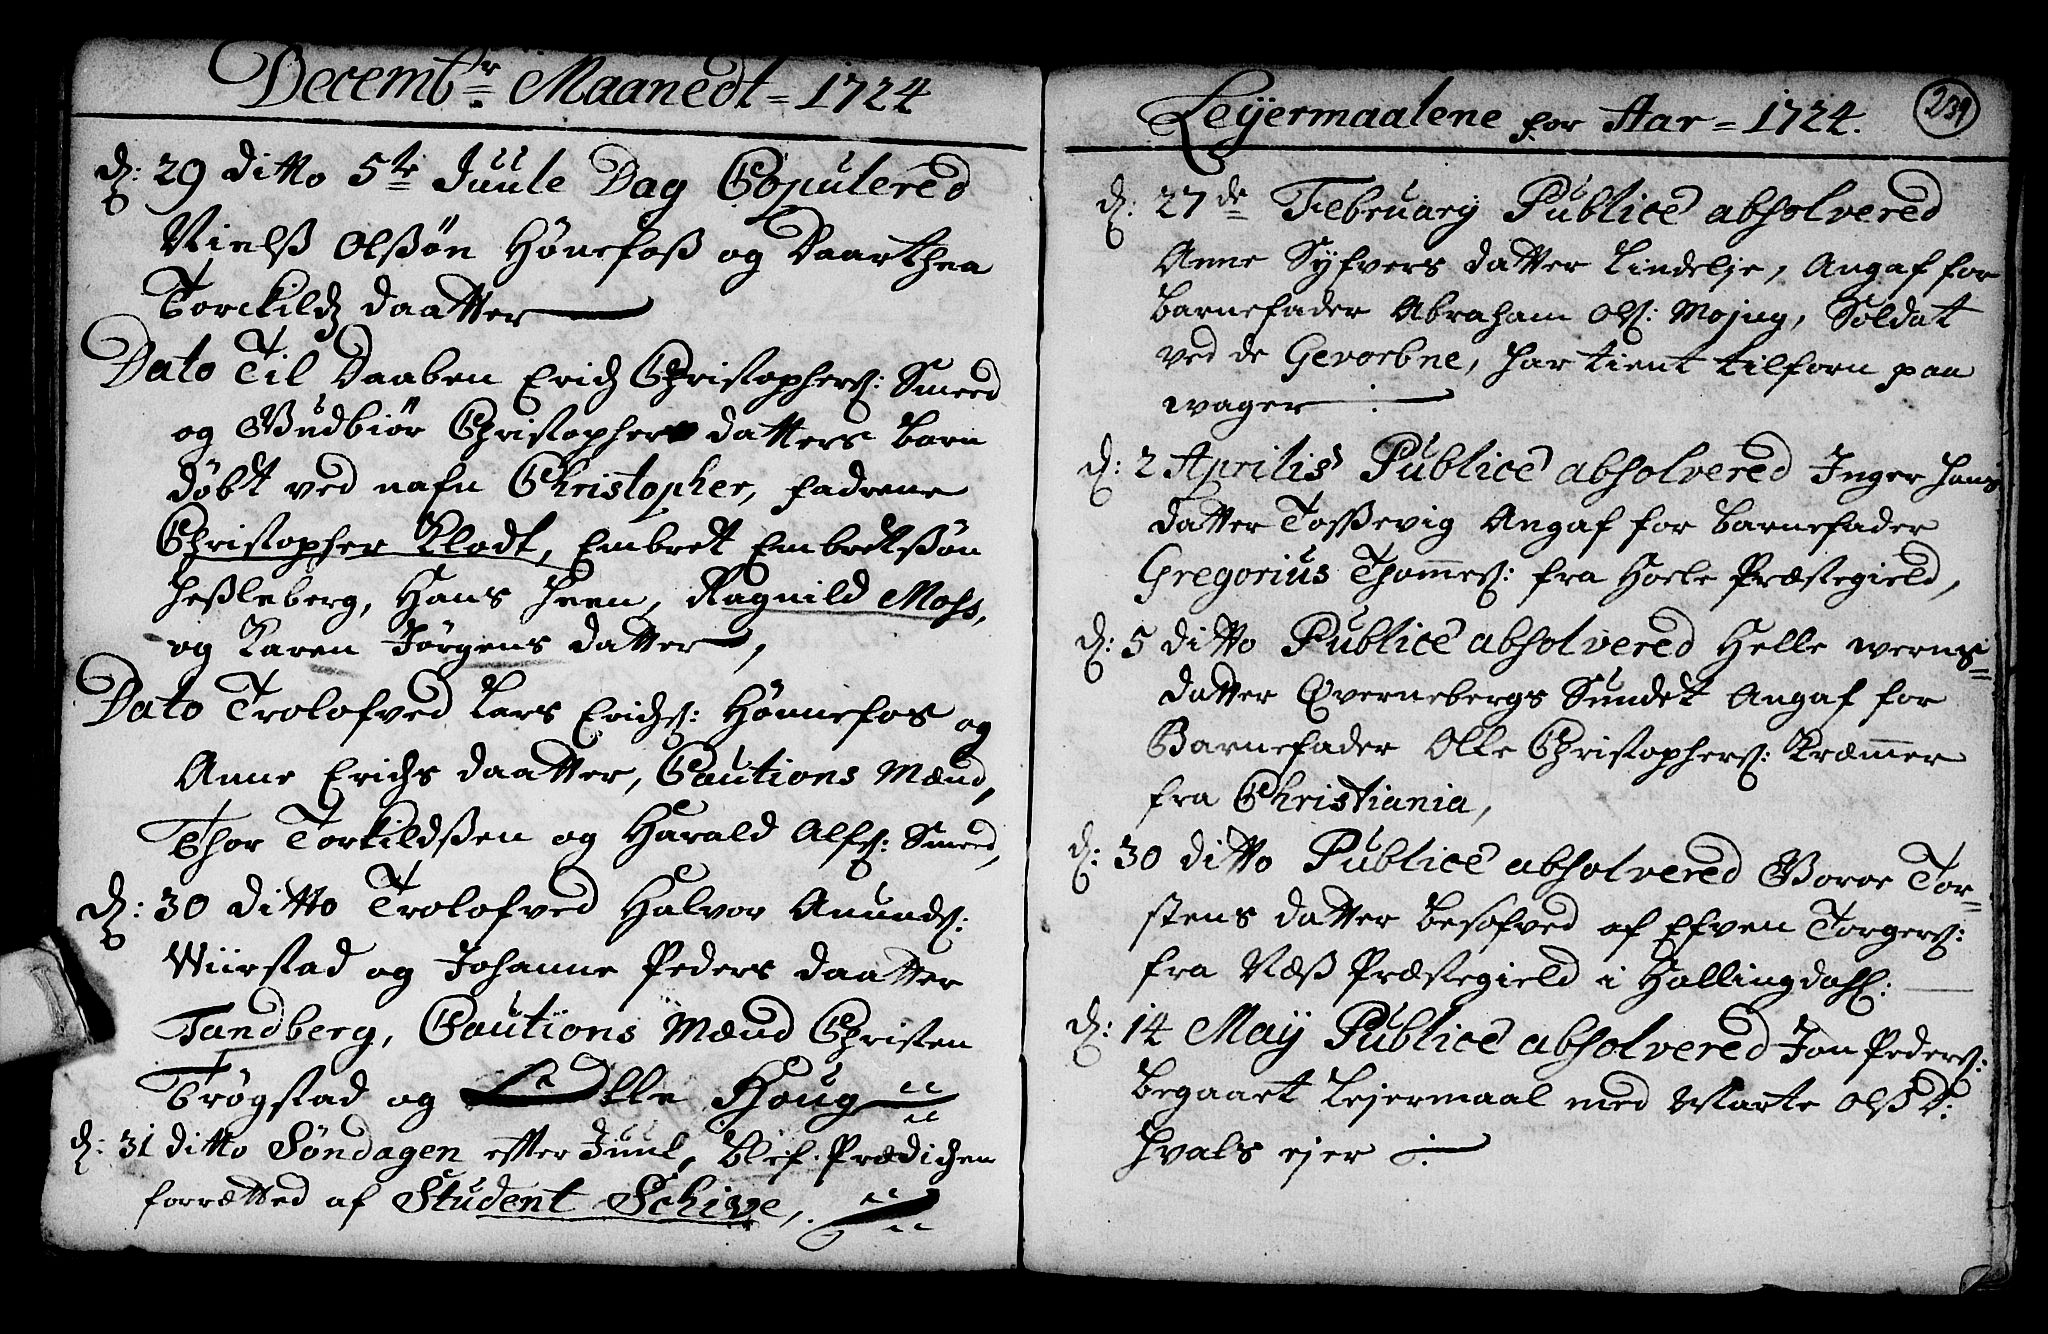 Decembr Maanedt = 1724
d: 29 ditto 5te Juule Dag Copulered
Nielß Olßøn Hønefoß og Daarthea
Torckildz daatter
Dato Til Daaben Erich Christophers: Smeed
og Gudbiør Christophers datters barn
døbt ved nafn Christopher, fadrene
Christopher Klodt, Embret Embretßøn
Heßleberg, Hans Heen, Ragnild Moss,
og Karen Jørgens datter,
Dato Trolofved Lars Erichs: Hønnefos og
Anne Erichs daatter, Cautions Mænd,
Thor Torkildßen og Harald Alfs: Smeed,
d: 30 ditto Trolofved Halvor Anunds:
Wiirstad og Johanne Peders daatter
Tandberg, Cautions Mænd Christen
Trøgstad og Olle Houg
d: 31 ditto Søndagen efter Juul, blef Prædichen
forrætted af Student Schive,
Leyermaalene for Aar = 1724.
239
d: 27de February Publice absolvered
Anne Syfvers datter Lindelje, Angaf for
barnefader Abraham Ols: Mojng, Soldat
ved de Gevorbne, har tient tilforn paa
wager
d: 2 Aprilis Publice absolvered Inger Hans
datter Toßevig Angaf for barnefader
Gregorius Thommes: fra Hoele Præstegield,
d: 5 ditto Publice absolvered Helle werns=
datter Overnebergs Sundet Angaf for
Barnefader Olle Christophers: Kræmmer
fra Christiania,
d: 30 ditto Publice absolvered Goroe Tor=
stens datter besofved af Efven Torgers:
fra Næß Præstegield i Hallingdahl:
d: 14 May Publice absolvered Jon Peders:
begaaet Lejermaal med Marte Olß D:
Hvals ejer